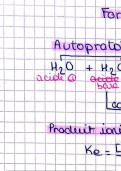 For
Autoproto
H₂O + H₂O
acide ① base
co
Produit ioni
Ke = [